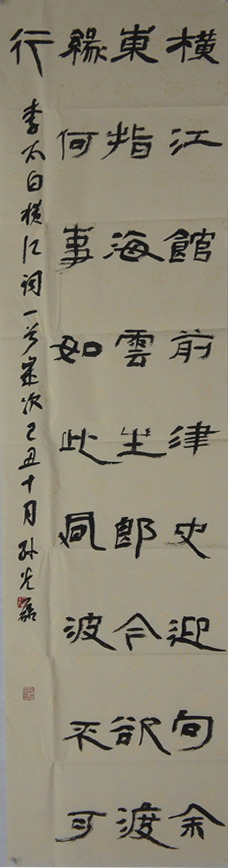 橫江館前津吏迎向余
東指海雲生郎今欲渡
緣何事如此風波不可
行
李太白橫江詞一首歲次己丑十月孙光